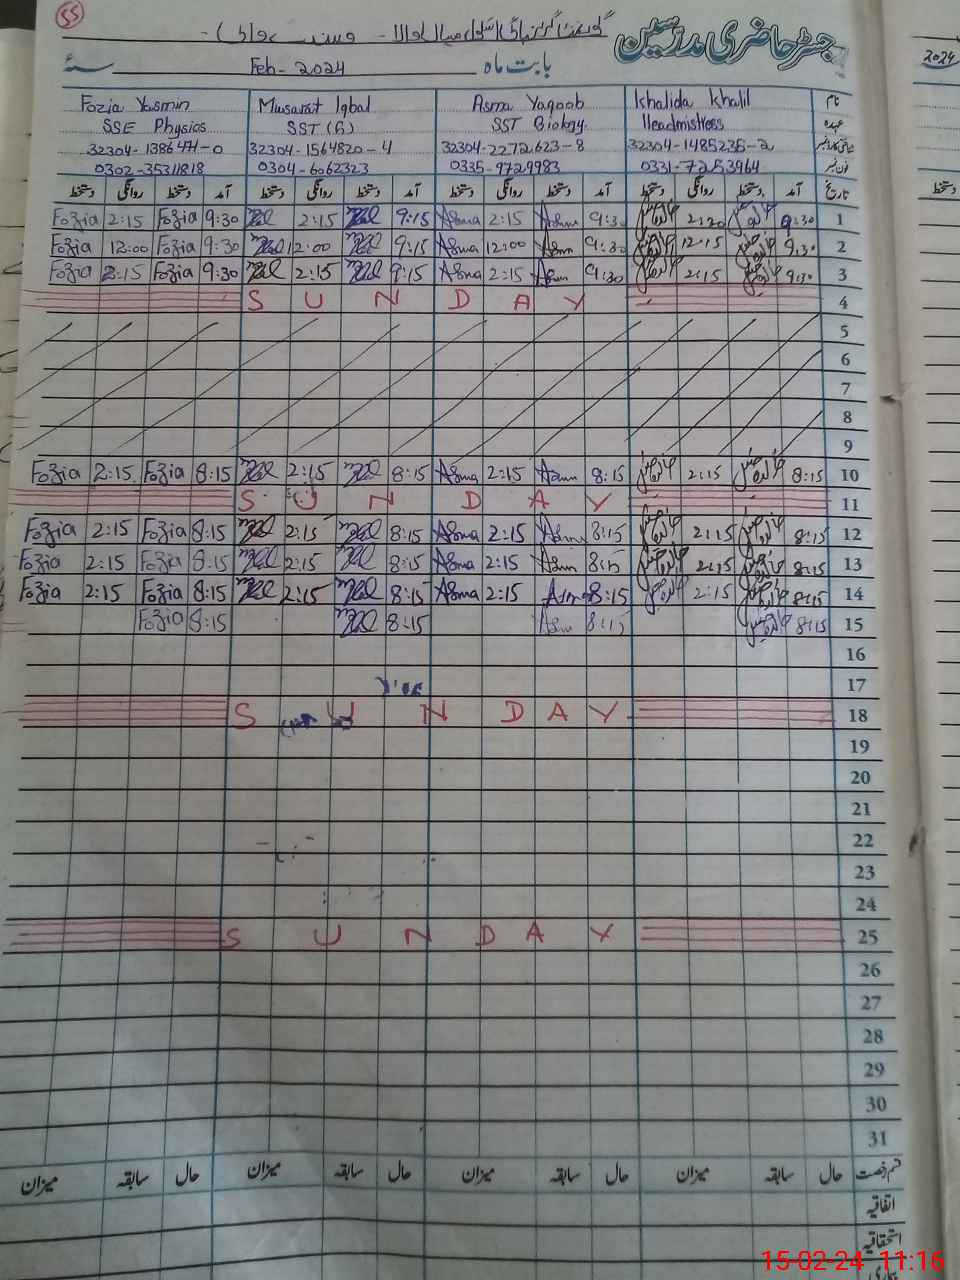 55
رجسٹر حاضری مدرسین
بابت ماہ Feb-2024 سنہ
2024
نام Khalida Khalil Asma Yaqoob Musarat Iqbal Fozia Yasmin
عہدہ Headmistress SST Biology SST (G) SSE Physics
32304-1485236-2 32304-2272623-8 32304-1564820-4 32304-1386471-0
فون نمبر 0331-7253964 0335-9729983 0304-6062323 0302-35311818
تاریخ آمد دستخط روانگی دستخط آمد دستخط روانگی دستخط آمد دستخط روانگی دستخط آمد دستخط روانگی دستخط
دستخط
1 9:30 2:20 9:30 Asma 2:15 Asma 9:15 2:15 9:30 Fozia 2:15 Fozia
2 9:30 12:15 9:30 Asma 12:00 Asma 9:15 12:00 9:30 Fozia 12:00 Fozia
3 9:30 2:15 9:30 Asma 2:15 Asma 9:15 2:15 9:30 Fozia 2:15 Fozia
S U N D A Y 4
5
6
7
8
9
10 8:15 2:15 8:15 Asma 2:15 Asma 8:15 2:15 8:15 Fozia 2:15 Fozia
S U N D A Y 11
12 8:15 2:15 8:15 Asma 2:15 Asma 8:15 2:15 8:15 Fozia 2:15 Fozia
13 8:15 2:15 8:15 Asma 2:15 Asma 8:15 2:15 8:15 Fozia 2:15 Fozia
14 8:15 2:15 8:15 Asma 2:15 Asma 8:15 2:15 8:15 Fozia 2:15 Fozia
15 8:15 8:15 Asma 8:15 8:15 Fozia
16
17
S U N D A Y 18
19
20
21
22
23
24
S U N D A Y 25
26
27
28
29
30
31
قسم رخصت حال سابقہ میزان حال سابقہ میزان حال سابقہ میزان حال سابقہ میزان
اتفاقیہ
استحقاقیہ
15-02-24 11:16